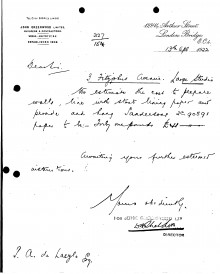 JOHN GREENWOOD LIMITED.
327
1514
12 Arthur Street
London Bridge
E.C.4
13th Sept 1922
Dear Sir
3 Fitzjohns Avenue. Large Studio
We estimate the cost to prepare
walls, line with stout lining paper and
provide and hang Sandersons
paper to be Forty one pounds
Awaiting your further esteemed
instructions.
Yours obediently
FOR JOHN GREENWOOD LTD
DIRECTOR
P. A. de Laszlo
Esq.